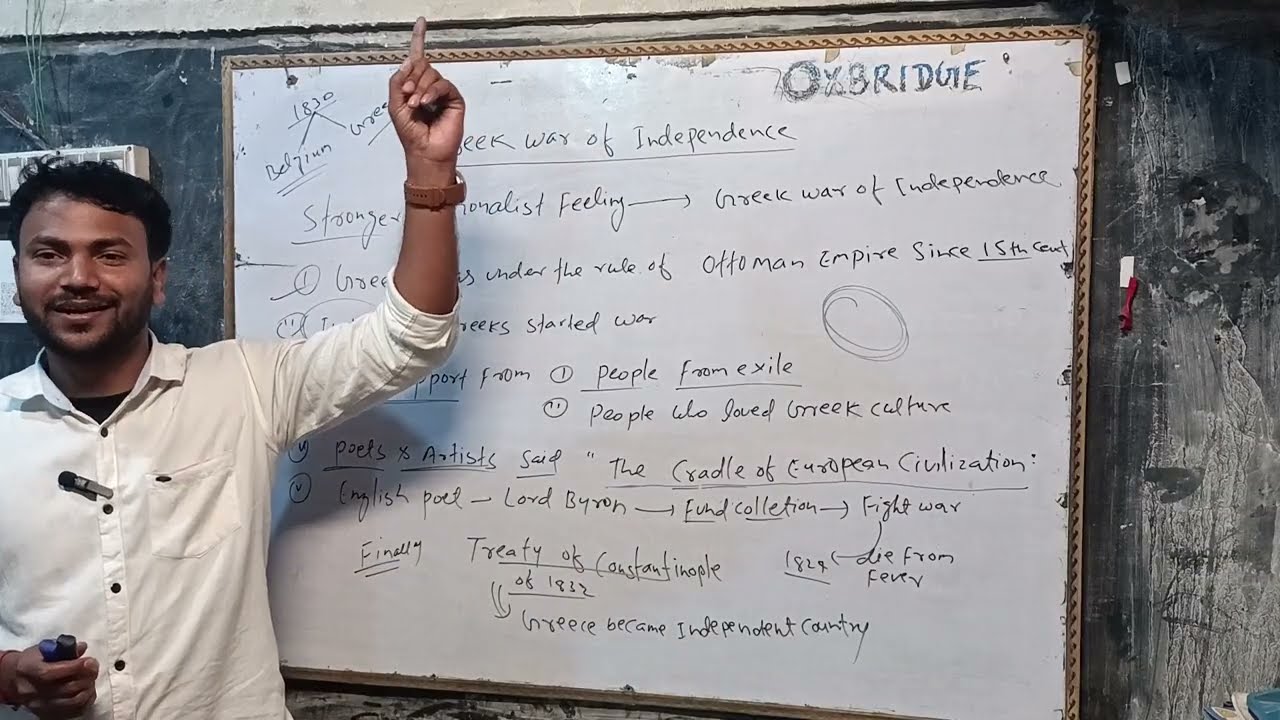 OXBRIDGE
1830
Belgium
Greek War of Independence
Stronger Feeling → Greek war of Independence
① under the rule of Ottoman Empire Since 15th cent
② started war
from ① People from exile
② People who loved Greek culture
Poets & Artists Said "The Cradle of European Civilization:
Ⓥ English poet - Lord Byron → Fund colletion → Fight war
die from
Fever
Finally Treaty of Constantinople
of 1832
Greece became Independent Country